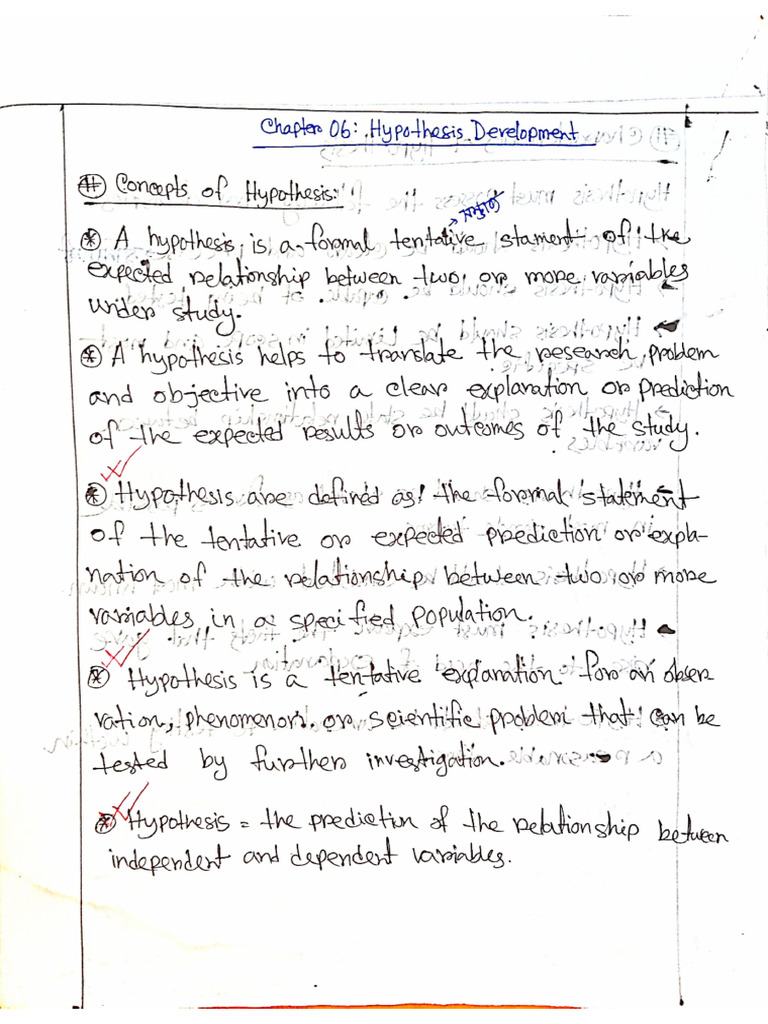 Chapter 06: Hypothesis Development
# Concepts of Hypothesis:
* A hypothesis is a formal tentative stament of the
expected relationship between two or more variables
under study.
* A hypothesis helps to translate the research problem
and objective into a clear explanation or prediction
of the expected results or outcomes of the study.
* Hypothesis are defined as! the formal statement
of the tentative or expected prediction or expla-
nation of the relationship between two or more
variables in a specified population.
* Hypothesis is a tentative explanation for an obser
vation, phenomenon or scientific problem that can be
tested by further investigation.
* Hypothesis = the predictiun of the relationship between
independent and dependent variables.